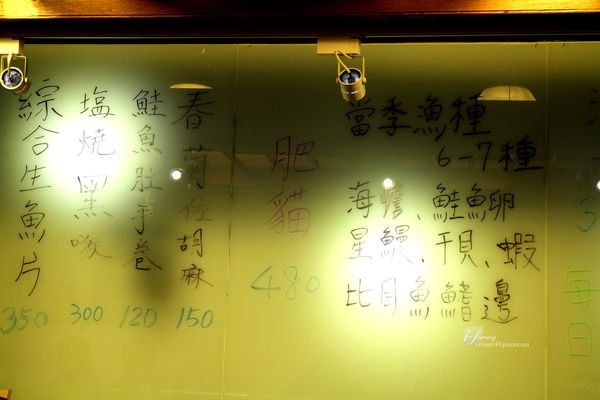 綜合生魚片
350
塩燒黑喉
300
鮭魚肚手卷
120
春菊佐胡麻
150
肥貓
480
當季漁種
6-7種
海膽、鮭魚卵
星鰻、干貝、蝦
比目魚鰭邊
每日